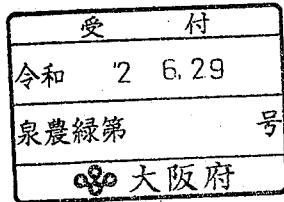 受 付
令和 '2 6.29
泉農緑第 号
大阪府